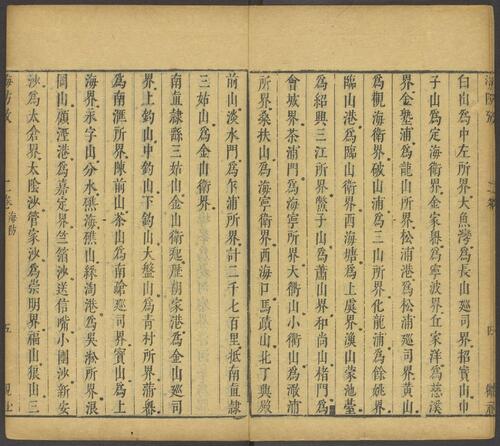 白山為中左所界大魚灣為長山巡司界招寶山中
子山為定海衛界金家嶴為寧波界丘家洋為慈溪
界金塾浦為龍山所界松浦港為松浦巡司界黄山
為觀海衛界破山浦為三山所界化龍浦為餘姚界
臨山港為臨山衛界西海塘為上虞界澳山蒙池臺
為紹興三江所界鱉子山為蕭山界和尚山楮門為
會城界茶浦門為海寧所界大衢山小衢山為澉浦
所界桑扶山為海寧衛界西海口馬蹟山北丁興殿
前山淡水門為乍浦所界計二千七百里抵南直隷
三姑山為金山衛界
南直隷縣三姑山金山衛起歴胡家港為金山巡司
界上釣山中釣山下釣山大盤山為青村所界蒲嶴
為南滙所界陳前山茶山為南䠂巡司界寶山為上
海界永字山分水礁海礁山綵淘港為吳淞所界浪
岡山顧涇港為嘉定界竺箔沙送信嘴小團沙新安
沙為太倉界太陰沙管家沙為崇明界福山狼山三
海防攷
二卷
海防
五